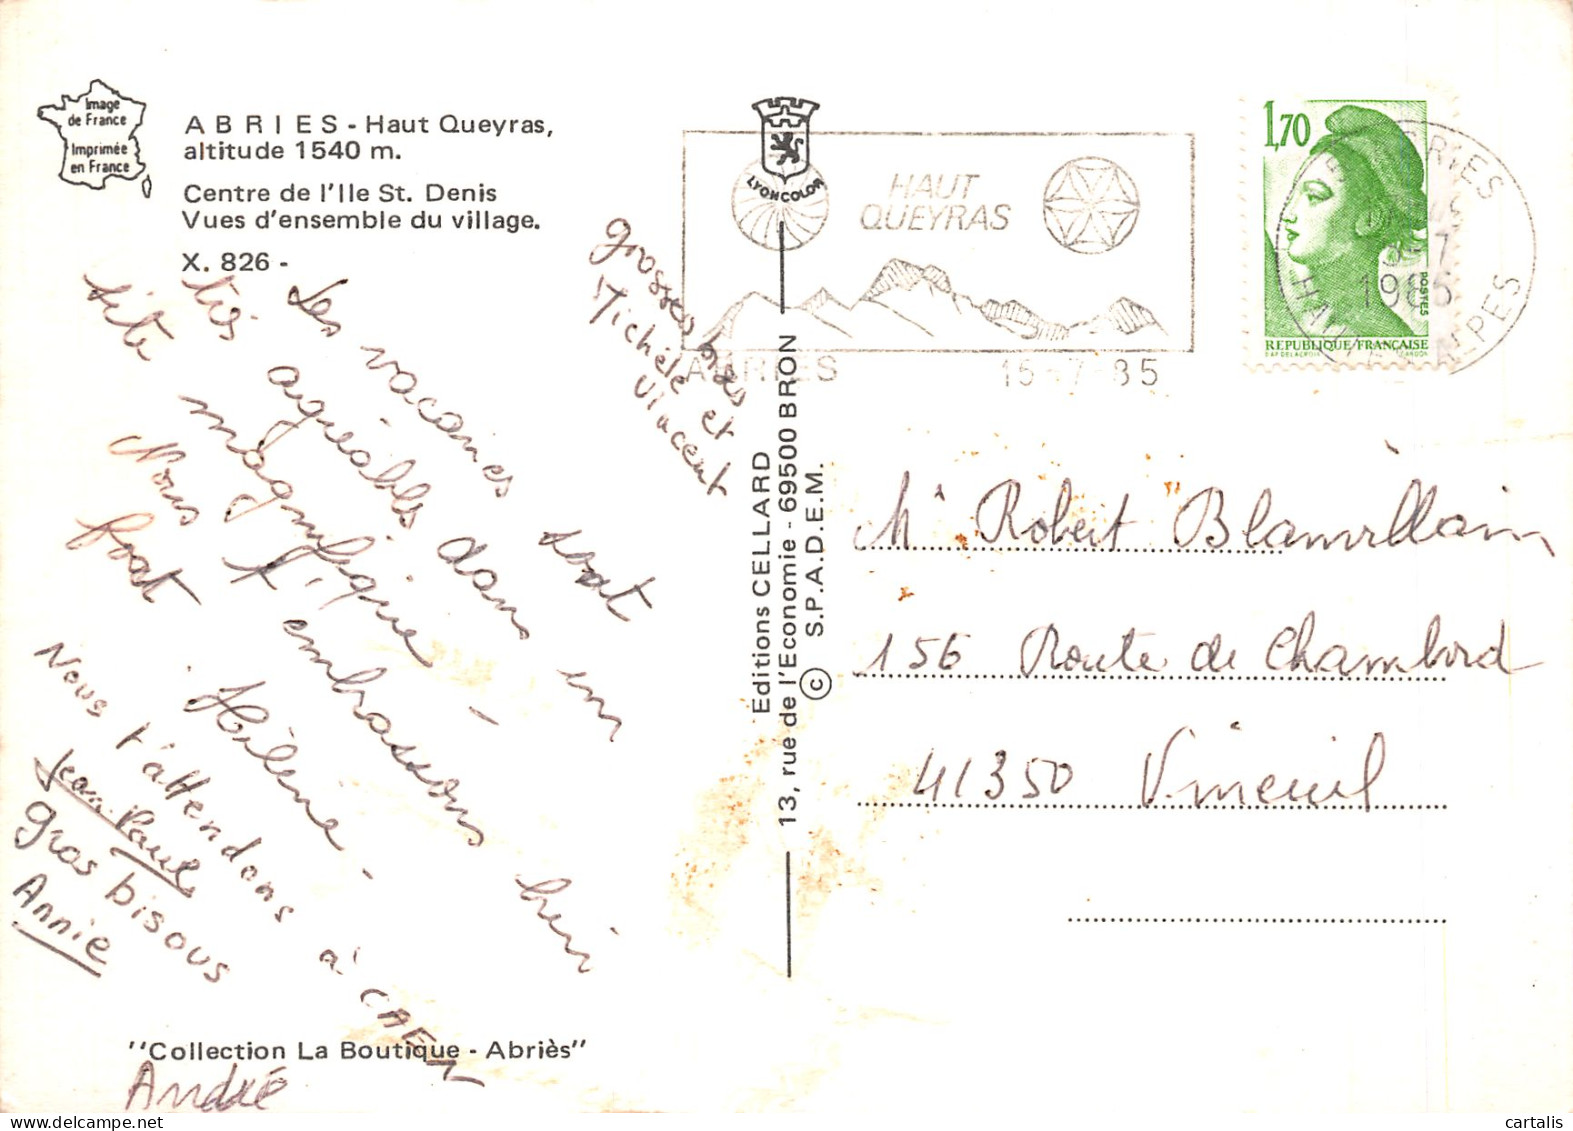 Image
de France
Imprimée
en France
ABRIES - Haut Queyras,
altitude 1540 m.
Centre de l'Ile St. Denis
Vues d'ensemble du village.
X. 826 -
Les vacances sont
très agréables dans un
site magnifique -
Nous t'embrassons bien
fort
Hélène -
Nous t'attendons à CAEN
Jean-Paul
gros bisous
Annie
André
grosses bises
Michèle et
Vincent
"Collection La Boutique - Abriès"
LYONCOLOR
Editions CELLARD
13, rue de l'Economie - 69500 BRON
© S.P.A.D.E.M.
HAUT
QUEYRAS
ABRIES 15-7-85
1,70
POSTES
REPUBLIQUE FRANÇAISE
ABRIES
1985
HAUTES-ALPES
Mr Robert Blamvillain
156 Route de Chambord
41350 Vineuil
cartalis.com